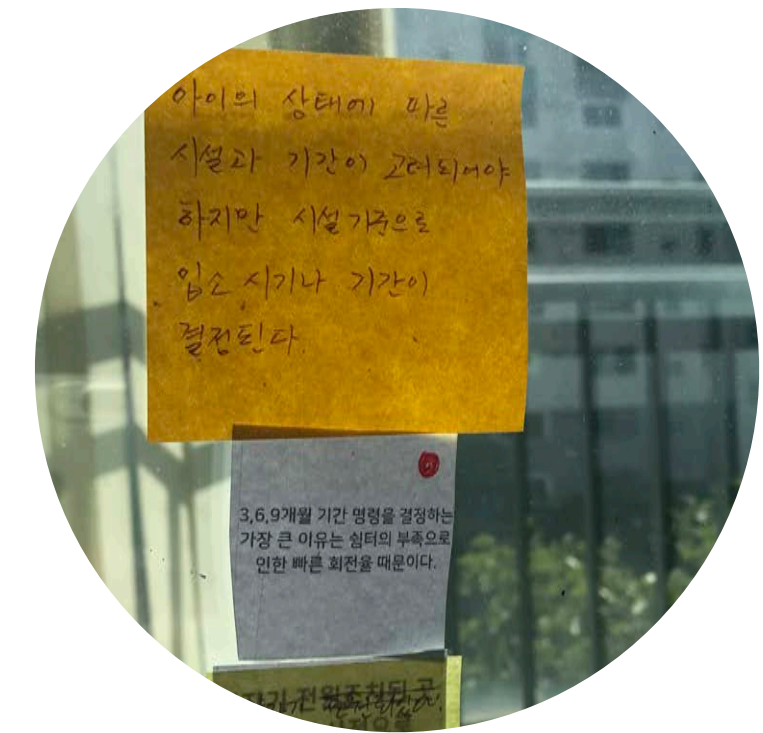 아이의 상태에 따른
시설과 기간이 고려되어야
하지만 시설기준으로
입소 시기나 기간이
결정된다.
3,6,9개월 기간 명령을 결정하는
가장 큰 이유는 쉼터의 부족으로
인한 빠른 회전율 때문이다.